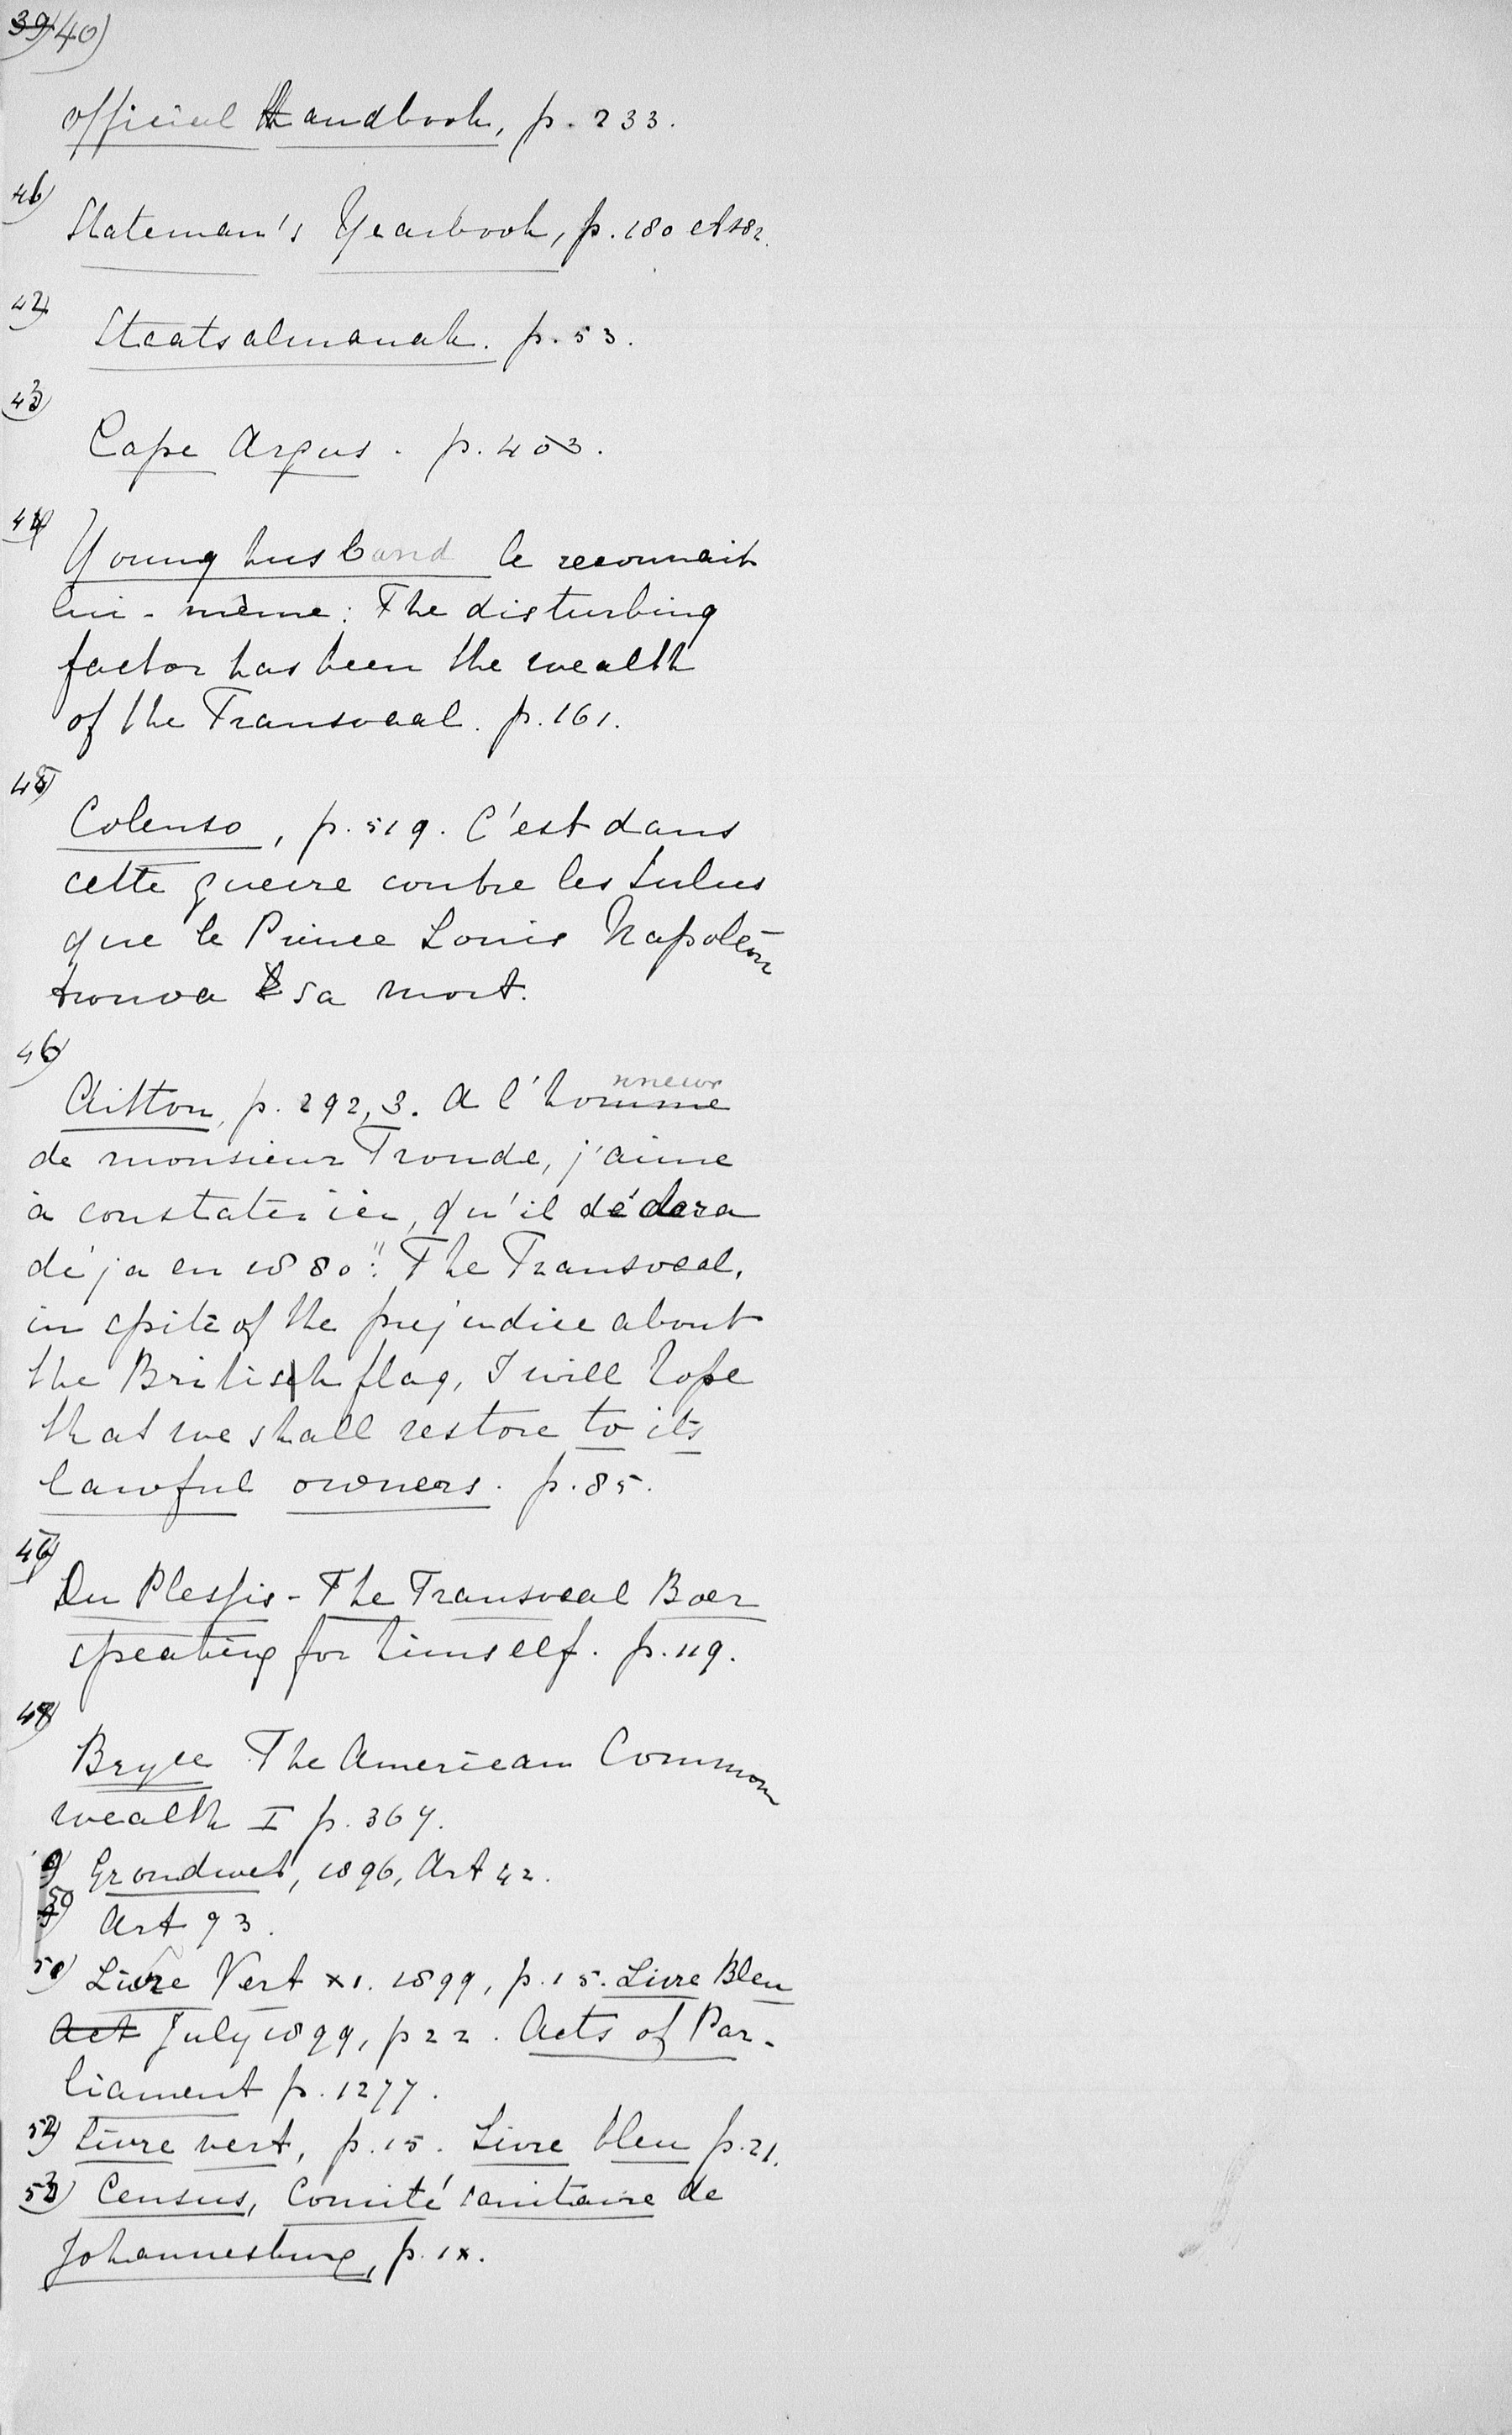 39) 40)
official Handbook, p. 233.
46)
Stateman's Yearbook, p. 180 et 182.
42)
Staatsalmanak. p. 53.
43)
Cape Argus. p. 403.
44)
Younghusband le reconnait
lui-même: The disturbing
factor has been the wealth
of the Transvaal. p. 161.
45)
Colenso, p. 519. C'est dans
cette guerre contre les Sulus
que le Prince Louis Napoléon
trouva sa mort.
46)
nneur
Aitton, p. 292, 3. A l'homme
de monsieur Froude, j'aime
à constater ici, qu'il déclara
déja en 1880: "The Transvaal,
in spite of the prejudice about
the British flag, I will hope
that we shall restore to its
lawful owners. p. 85.
47)
Du Plessis - The Transvaal Boer
speaking for himself. p. 119.
48)
Bryce The American Common
wealth I p. 367.
9) Grondwet, 1896, Art 42.
50) Art 93.
51) Livre Vert XI. 1899, p. 15. Livre Bleu
Act July 1899, p 22. Acts of Par-
liament p. 1277.
52) Livre vert, p. 15. Livre bleu p. 21.
53) Census, Comité sanitaire de
Johannesburg, p. IX.